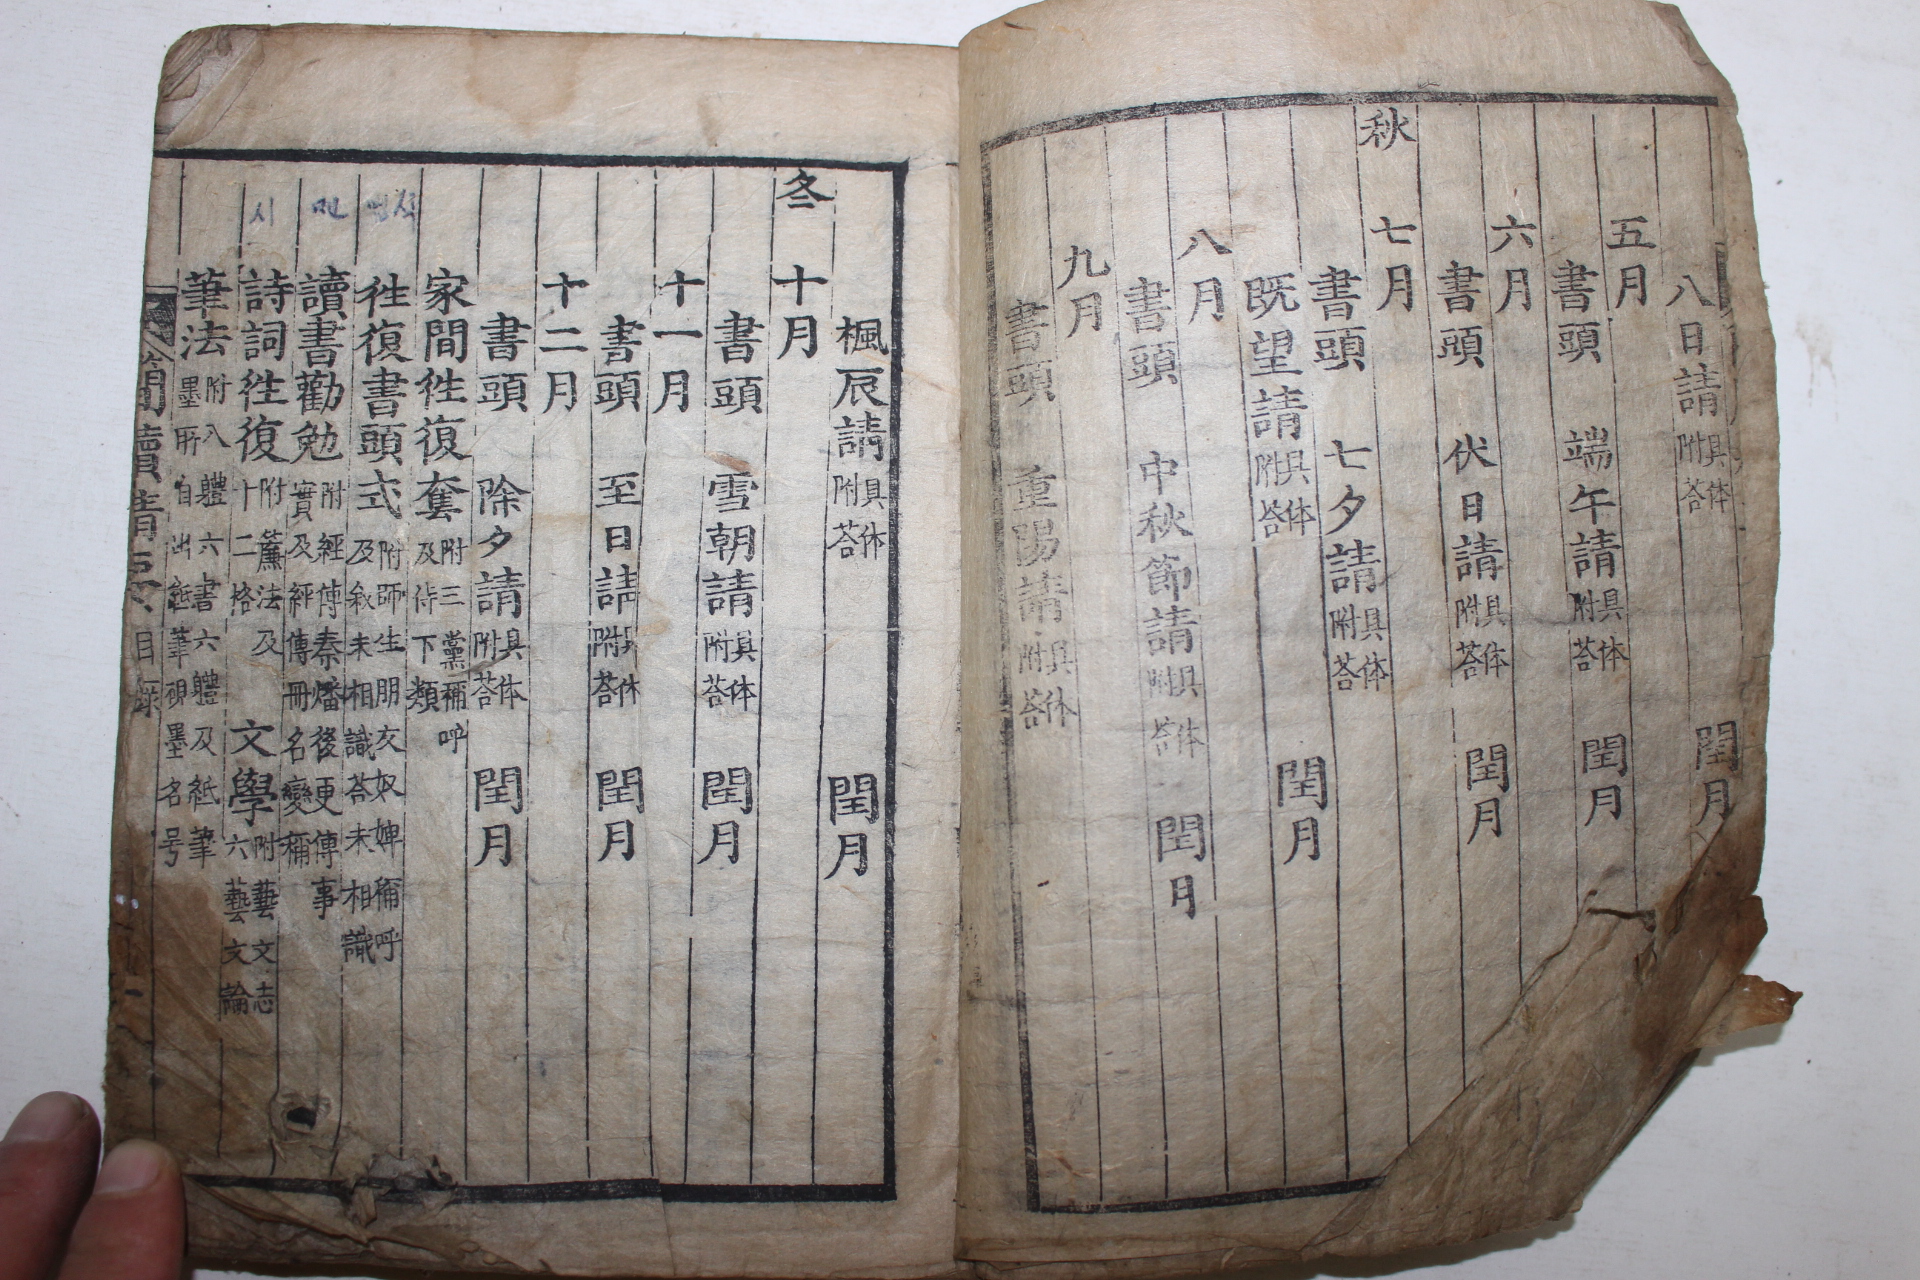 八日請 具体附答 閏月
五月
書頭 端午請 具体附答 閏月
六月
書頭 伏日請 具体附答 閏月
秋 七月
書頭 七夕請 具体附答 閏月
既望請 具体附答
八月
書頭 中秋節請 具体附答 閏月
九月
書頭 重陽請 具体附答
楓辰請 具体附答 閏月
冬 十月
書頭 雪朝請 具体附答 閏月
十一月
書頭 至日請 具体附答 閏月
十二月
書頭 除夕請 具体附答 閏月
家間徃復套 附三黨稱呼及侍下類
徃復書頭式 附師生朋友奴婢稱呼及叙未相識答未相識
讀書勸勉 附經傳秦燔後更傳事實及經傳冊名變稱
詩詞徃復 附簾法及十二格 文學 附藝文志六藝文論
筆法 附八體六書六體及紙筆墨所自出紙筆硯墨名号
簡牘精要 目錄
시